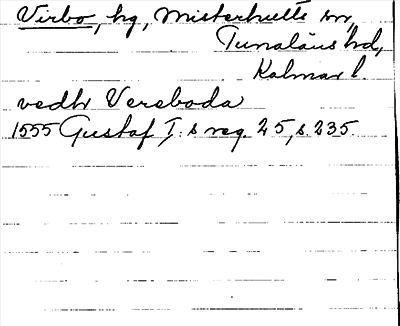 Virbo, hg, Misterhults sn,
Tunaläns hd,
Kalmar l.
vedhr Versboda
1555 Gustaf I:s reg. 25, s. 235.